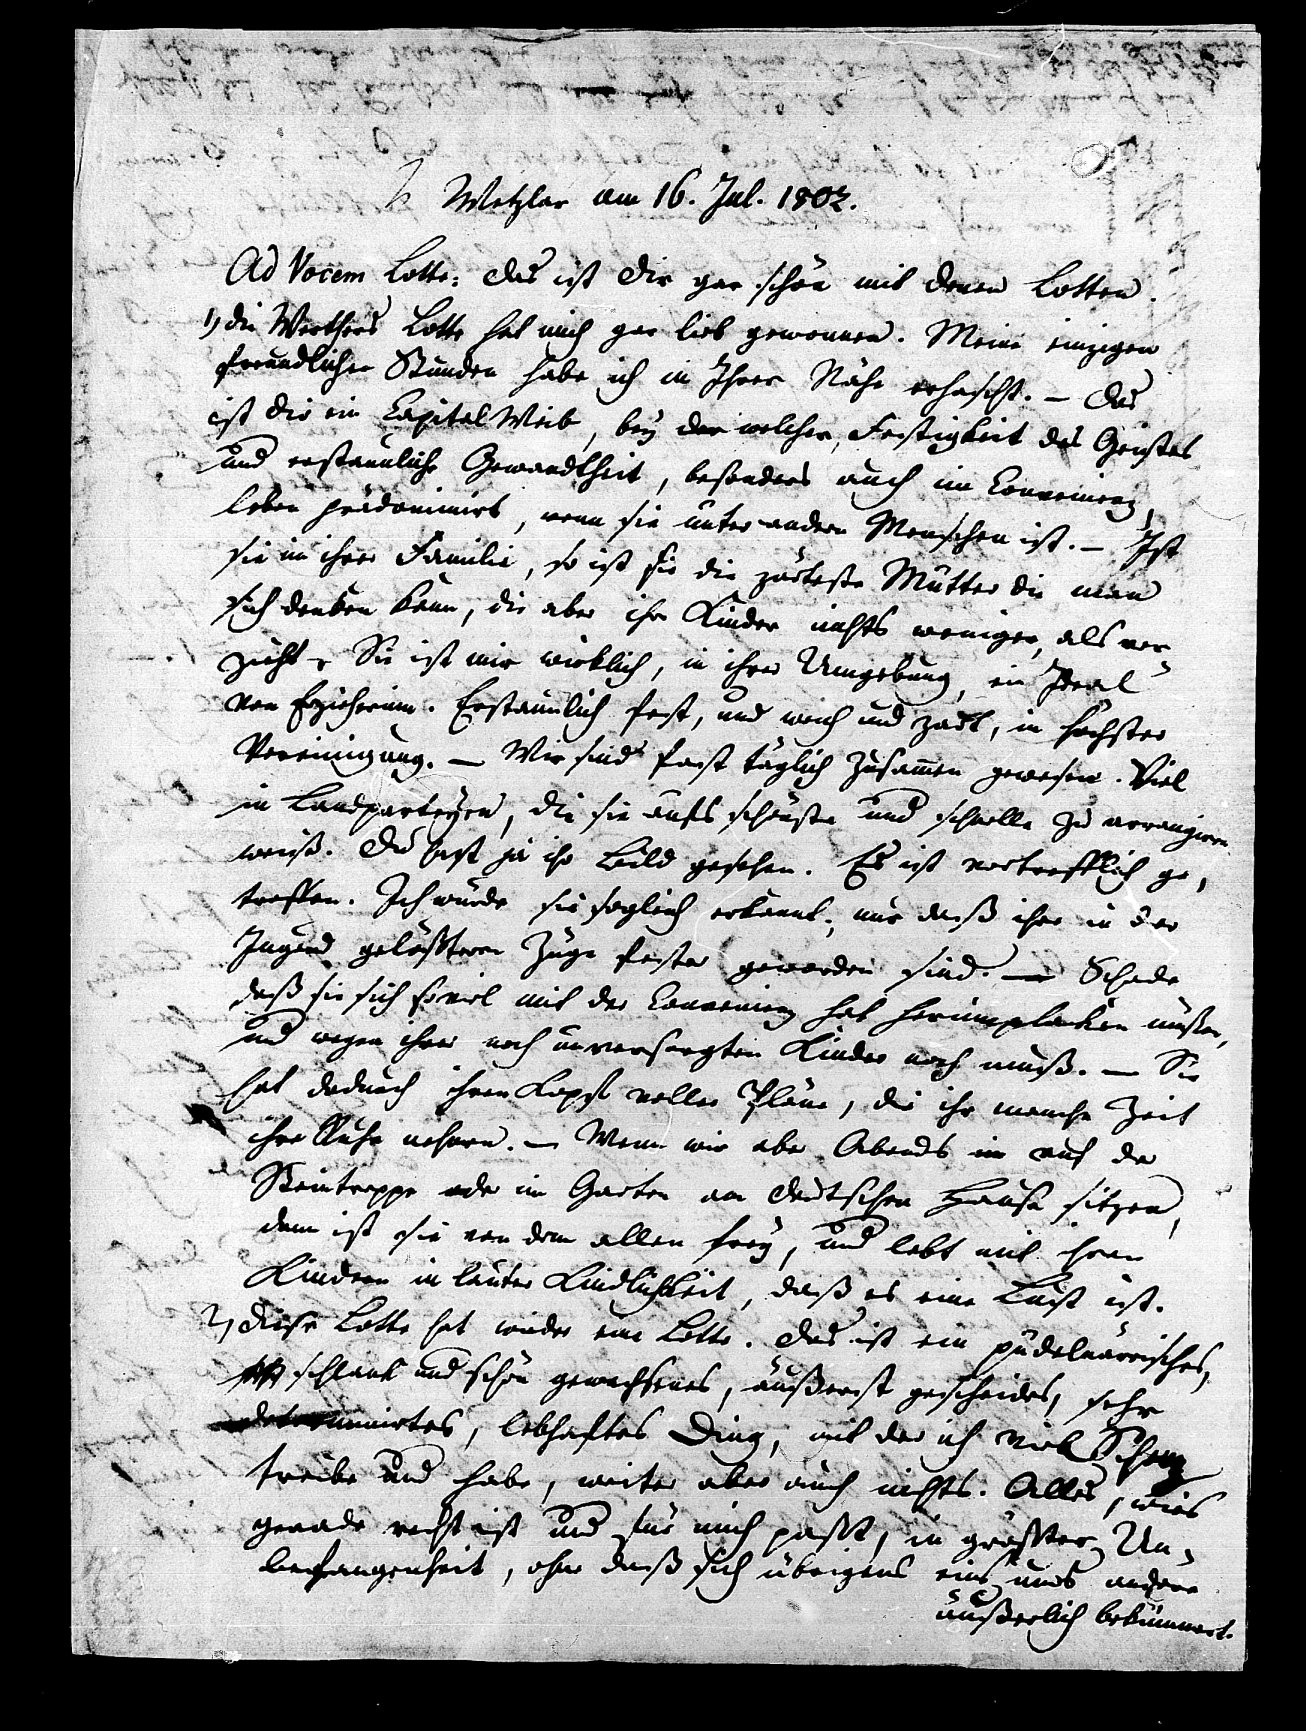 Wetzlar am 16. Jul. 1802.
Ad Vocem Lotte: Das ist Dir gar schön mit denen Lotten.
1, die Werthers Lotte hat mich gar lieb gewonnen. Meine einzigen
freundlichen Stunden habe ich in Ihrer Nähe erhascht. – Das
ist Dir ein Capital Weib, bey der welcher, Festigkeit des Geistes
und erstaunliche Gewandtheit, besonders auch im Convenienz,
leben prädominirt, wenn sie unter andern Menschen ist. – Ist
sie in ihrer Familie, so ist sie die zärteste Mutter die man
sich denken kann, die aber ihre Kinder nichts weniger, als ver
zieht. Sie ist mir wirklich, in ihrer Umgebung, ein Ideal
von Erzieherinn. Erstaunlich fest, und weich und zart, in höchster
Vereinigung. – Wir sind fast täglich zusamen gewesen. Viel
in Landpartyen, die sie aufs schönste und schnelle zu arrangiren
weiß. Du hast ja ihr Bild gesehen. Es ist vortrefflich ge,
troffen. Ich würde sie sogleich erkannt, nur daß ihre in der
Jugend gelößteren Züge fester geworden sind. – Schade
daß sie sich so viel mit der Convenienz hat herumplacken müßen,
und wegen ihrer noch unversorgten Kinder noch muß. – Sie
hat dadurch ihren Kopf voller Pläne, die ihr manche Zeit
ihre Ruhe nehmen. – Wenn wir aber Abends im auf der
Steintreppe oder im Garten am deutschen Hause sitzen,
dann ist sie von dem allen frey, und lebt mit ihren
Kindern in lauter Kindlichkeit, daß es eine Lust ist.
2, Diese Lotte hat wieder eine Lotte. Das ist ein pudelnärrisches,
schlank und schön gewachsenes, äußerst gescheides, sehr
determinirtes, lebhaftes Ding, mit der ich viel Scherz
treibe und habe, weiter aber auch nichts. Alles, wies
gerade recht ist und für mich paßt, in größter Un-
befangenheit, ohne daß sich übrigens eins ums andere
äußerlich bekümmert.